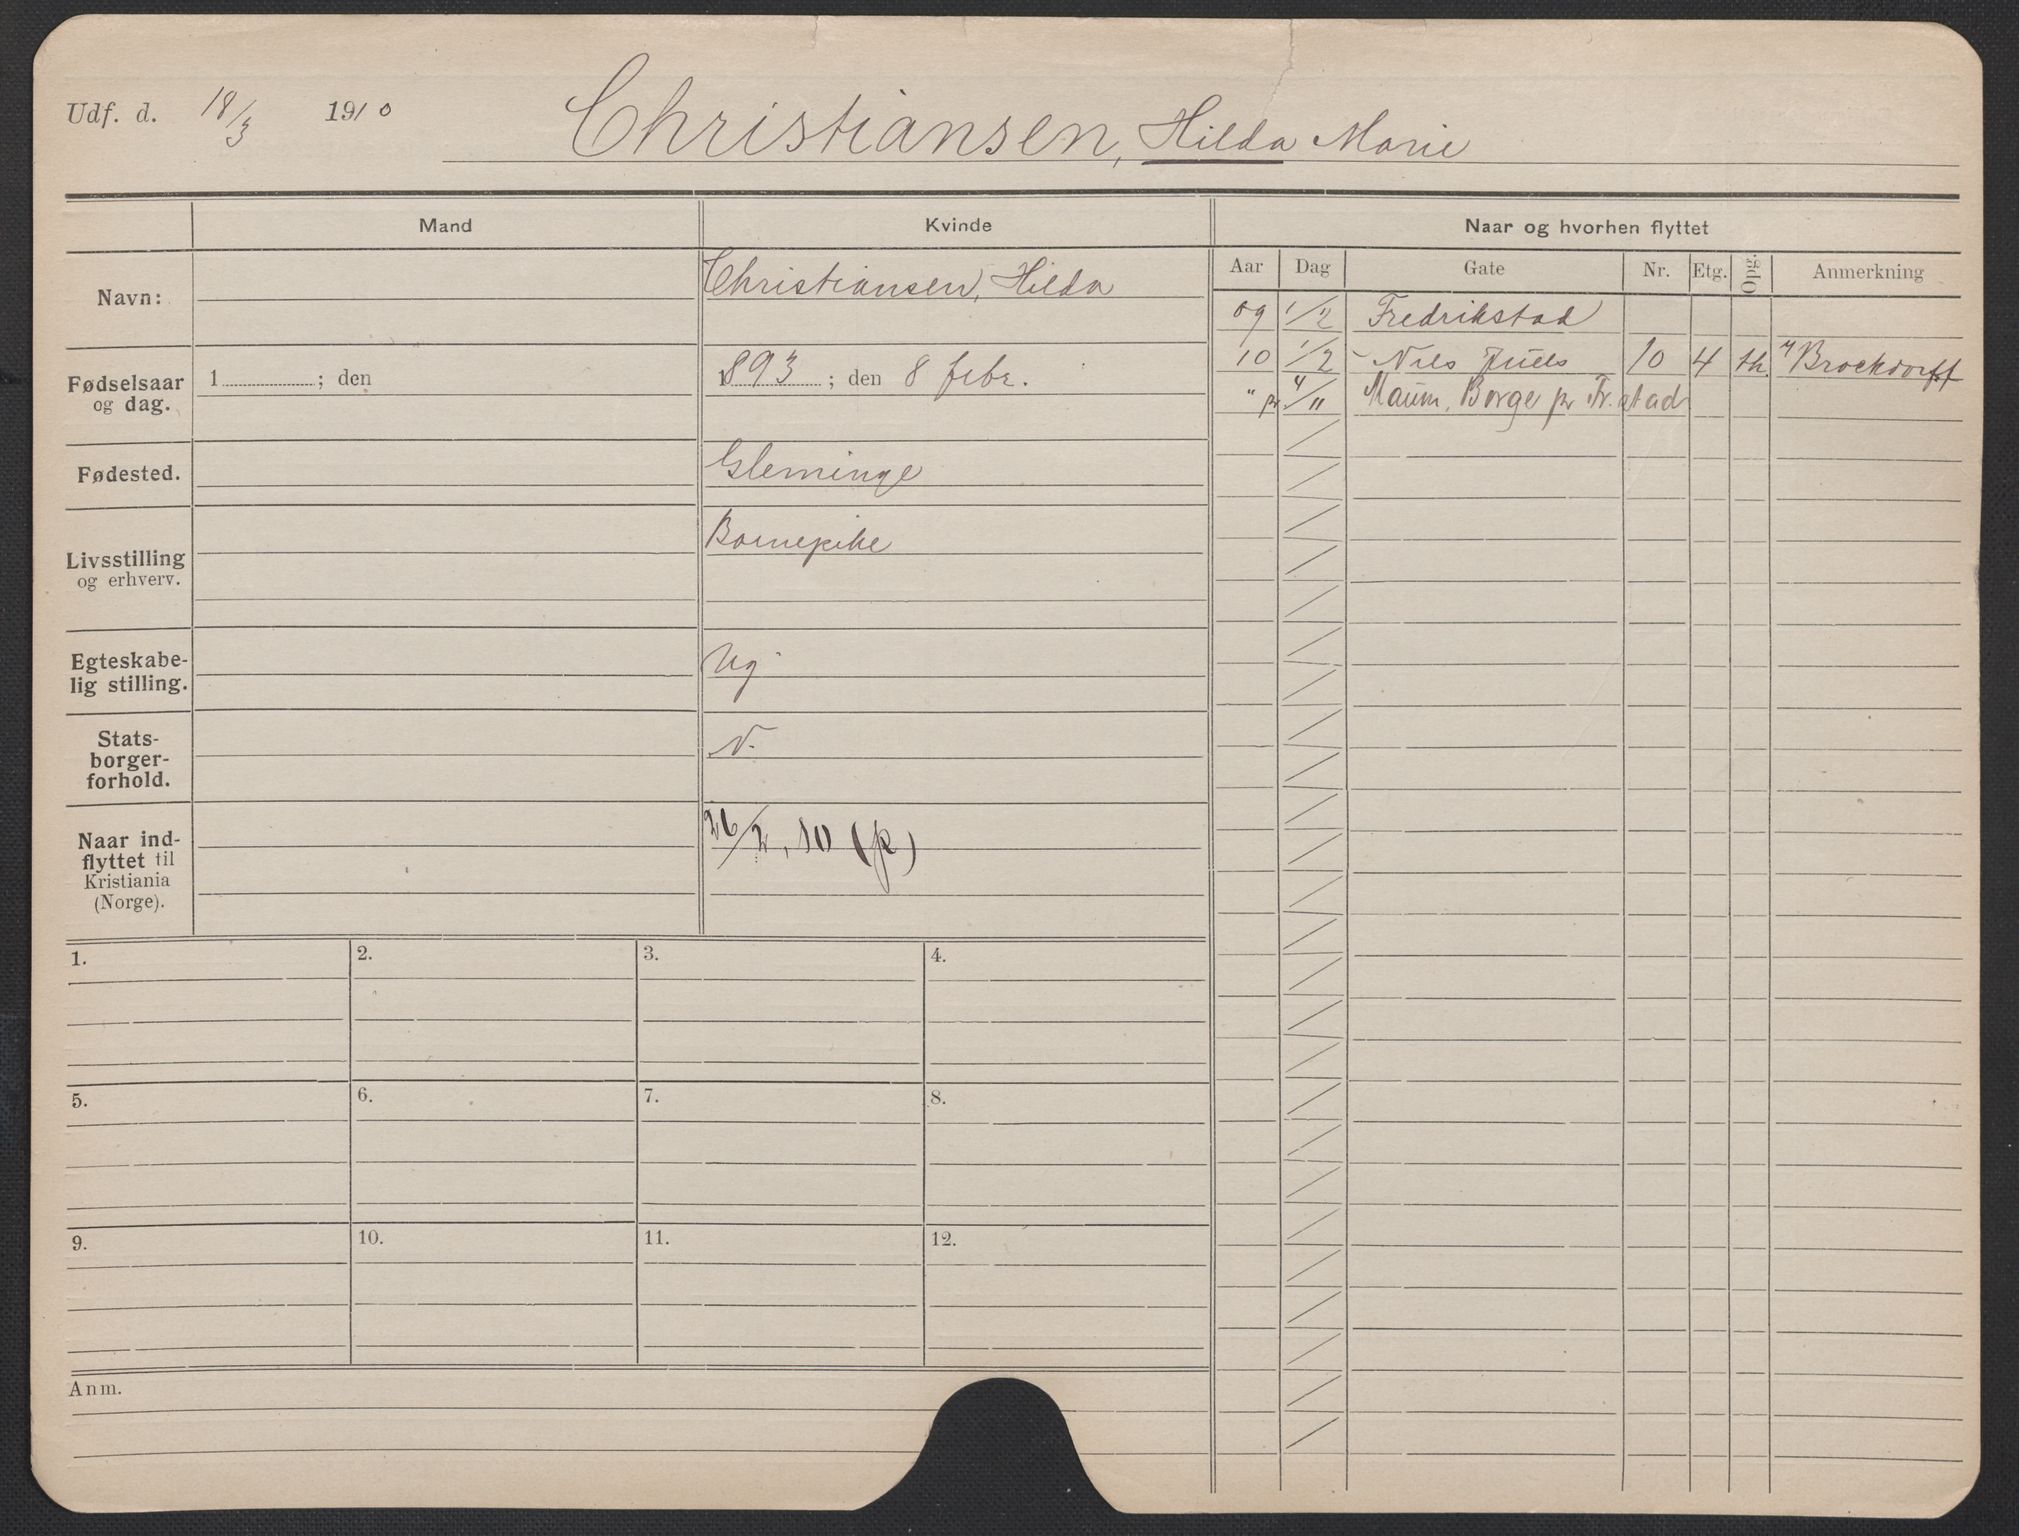 Udf. d. 18/3 1910 Christiansen, Hilda Marie
Mand
Kvinde
Naar og hvorhen flyttet
Aar Dag Gate Nr. Etg. Opg. Anmerkning
Navn:
Christiansen, Hilda
09 1/2 Fredrikstad
10 1/2 Nils Juels 10 4 th. Brockdorff
" pr 4/11 Maum, Borge pr Fr.stad
Fødselsaar
og dag.
1 ; den
1893 ; den 8 febr.
Fødested.
Gleminge
Livsstilling
og erhverv.
Barnepike
Egteskabe-
lig stilling.
Ug
Stats-
borger-
forhold.
N.
Naar ind-
flyttet til
Kristiania
(Norge).
26/2, 10 (p)
1. 2. 3. 4.
5. 6. 7. 8.
9. 10. 11. 12.
Anm.